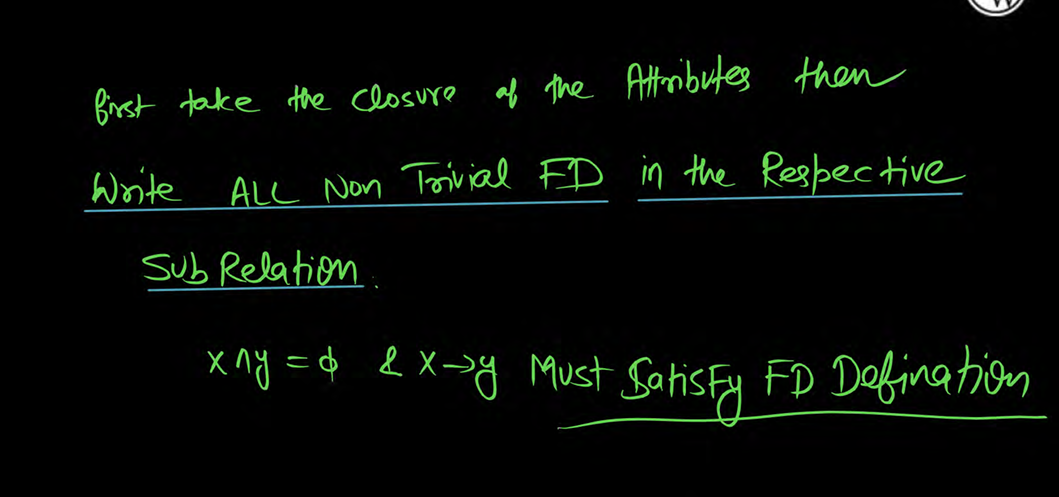 first take the closure of the Attributes then
Write ALL Non Trivial FD in the Respective
Sub Relation.
X ∩ y = ϕ & X → y Must Satisfy FD Defination